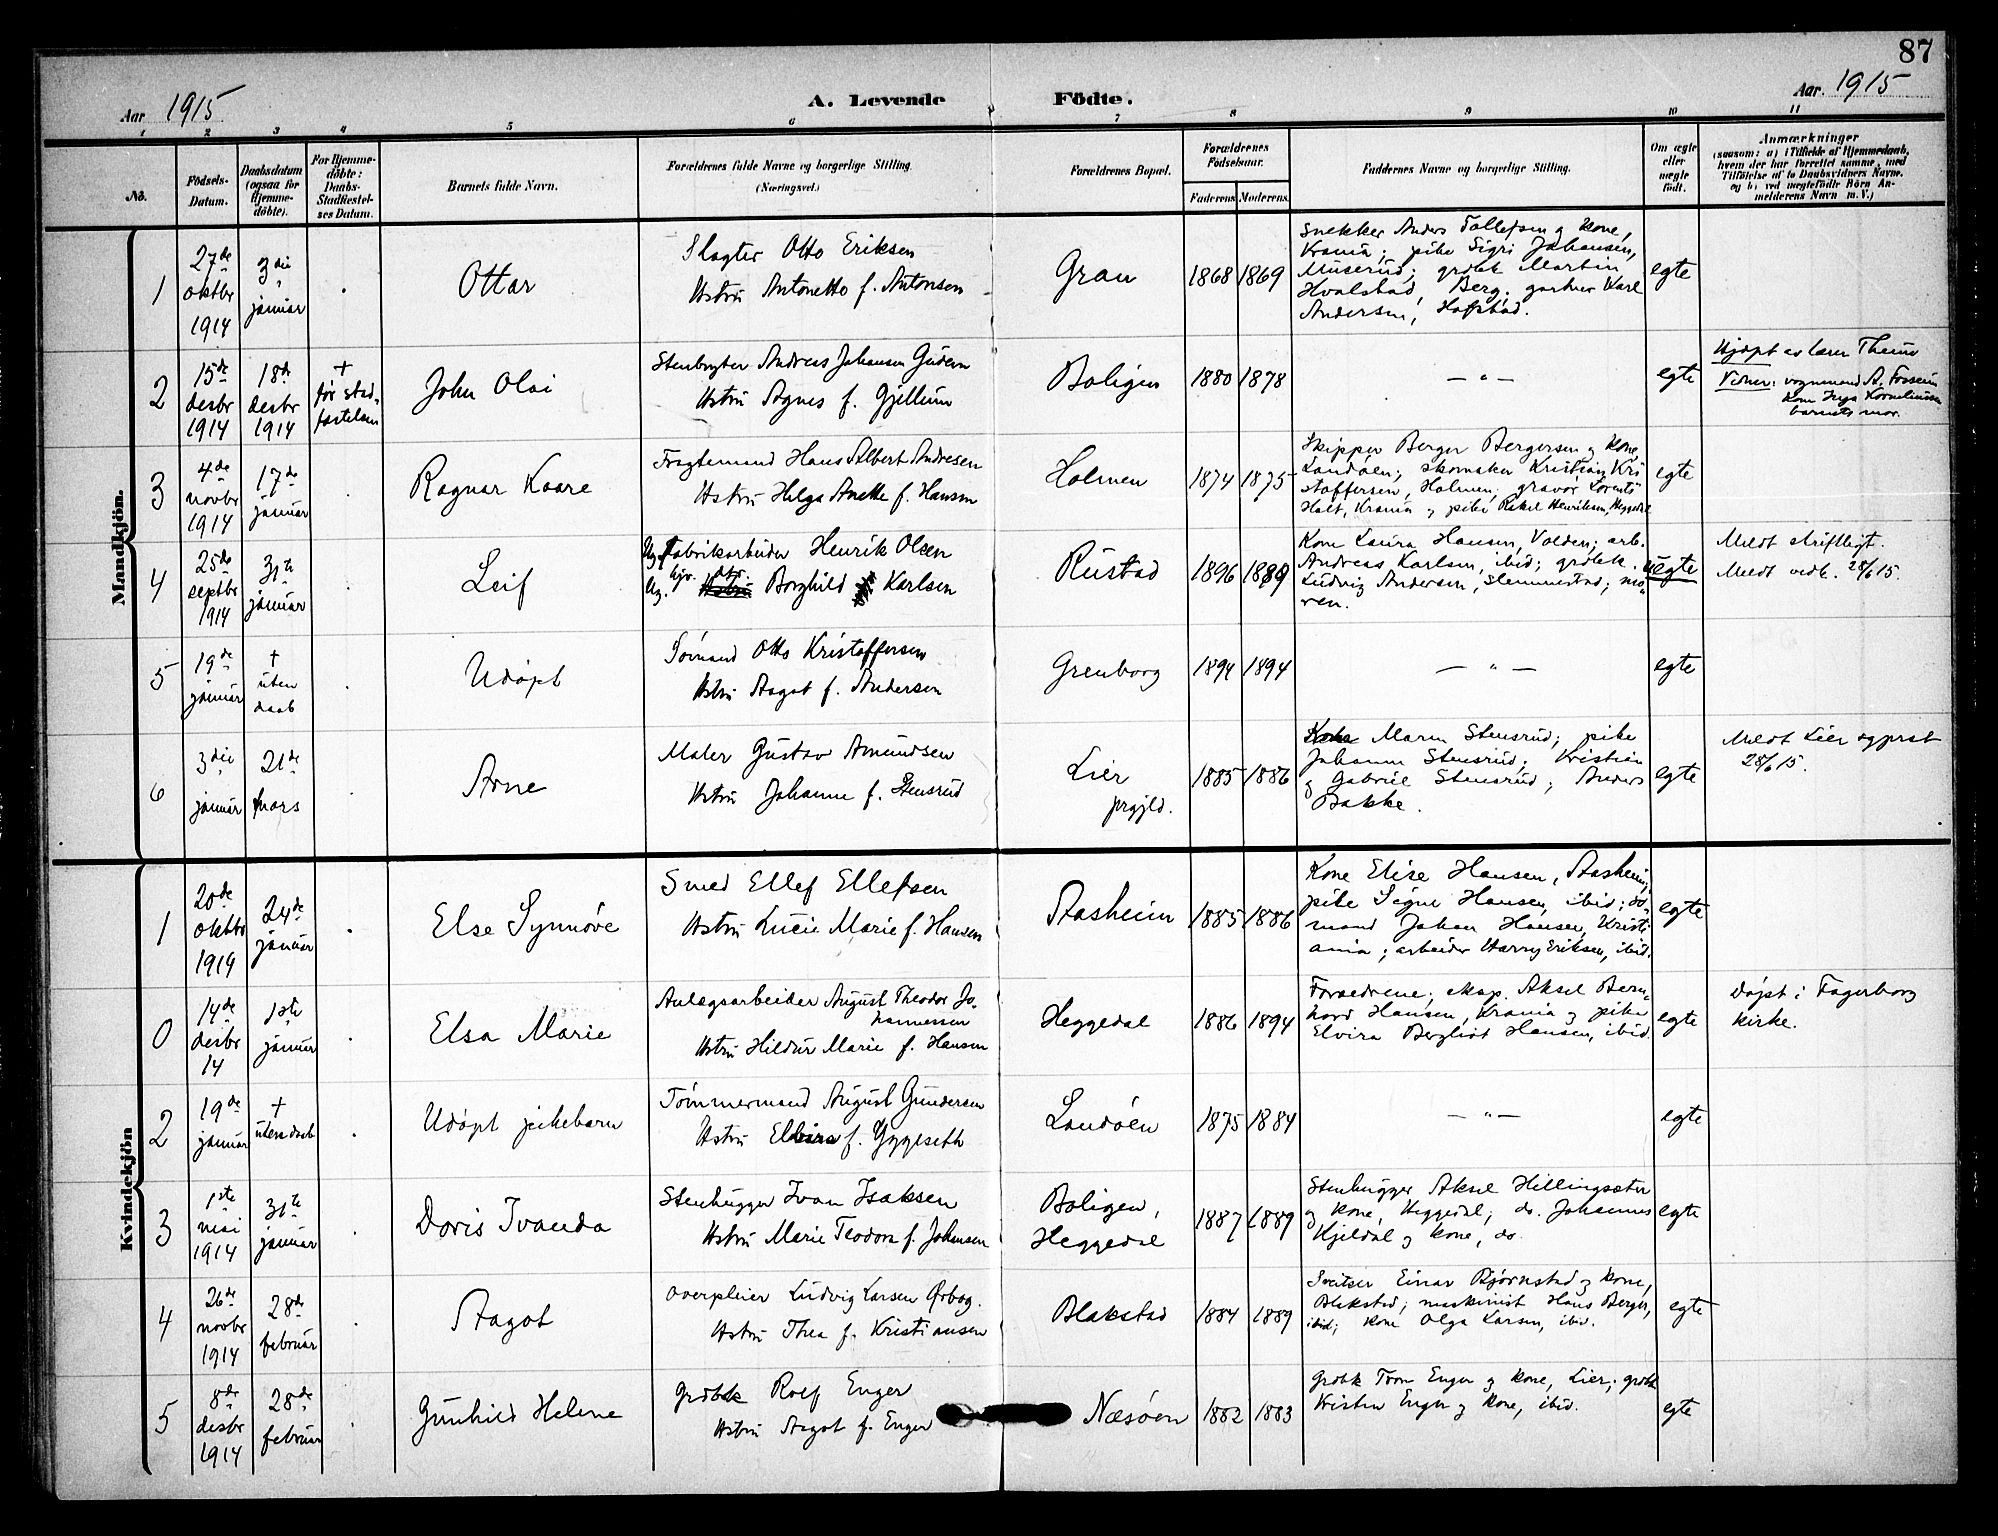 87
Aar 1915
A. Levende Födte.
Aar. 1915
1 2 3 4 5 6 7 8 9 10 11
No.
Födsels-Datum.
Daabsdatum (ogsaa for Hjemmedöbte).
For Hjemmedöbte: Daabs-Stadfæstelses Datum.
Barnets fulde Navn.
Forældrenes fulde Navne og borgerlige Stilling.
(Næringsvei.)
Forældrenes Bopæl.
Forældrenes Födselsaar.
Faderens Moderens
Faddernes Navne og borgerlige Stilling.
Om ægte eller uægte födt.
Anmærkninger
(saasom: a) i Tilfælde af Hjemmedaab, hvem der har forrettet samme, med Tilföielse af to Daabsvidners Navne, og b) ved uægtefödte Börn Anmelderens Navn m. V.)
Mandkjön.
1
27de oktbr 1914
3die januar
Ottar
Slagter Otto Eriksen
Hstru Antonette f. Antonsen
Grau
1868 1869
Snekker Anders Tollefsen og kone,
Krania; pike Sigri Johansen,
Muserud; grdbk Martin
Hvalstad, Berg; gartner Karl
Andersen, Hofstad.
egte
2
15de desbr 1914
18de desbr 1914
+ før stadfæstelsen
John Olai
Stenbryter Andreas Johansen
Hstru Agnes f. Gjellum
Boligen
1880 1878
— " —
egte
Hjdøpt av lærer
Vidner: vognmand A.
kone Inga Korneliussen
barnets mor.
3
4de novbr 1914
17de januar
Ragnar Kaare
Fragtemand Hans Albert Andresen
Hstru Helga Anette f. Hansen
Holmen
1874 1875
Skipper Berger Bergersen og kone,
Landøen; skomaker Kristian Kri
stoffersen, Holmen; gravør Lorents
Holt, Krania og pike Rakel Henriksen, Heggedal
egte
4
25de septbr 1914
31te januar
Leif
Ug. fabrikarbeider Henrik Olsen
Ug. Borghild Karlsen
Rustad
1896 1889
Kone Laura Hansen, Volden; arb.
Andreas Karlsen, ibid; grdbk.
Ludvig Andersen, Slemmestad; mo
ren.
uegte
Meldt skriftligt.
Meldt vedk. 28/6 15.
5
19de januar
+ uten daab
Udøpt
Sømand Otto Kristoffersen
Hstru Aagot f. Andersen
Grenborg
1894 1894
— " —
egte
6
3die januar
21de mars
Arne
Maler Gustav Amundsen
Hstru Johanne f. Stensrud
Lier
prgjld.
1885 1886
Maren Stensrud; pike
Johanne Stensrud; Kristian
og Gabriel Stensrud; Anders
Bakke.
egte
Meldt Lier sogneprst
28/6 15.
Kvindekjön
1
20de oktbr 1914
24de januar
Else Synnöve
Smed Ellef Ellefsen
Hstru Lucie Marie f. Hansen
Aasheim
1885 1886
Kone Elise Hansen, Aasheim;
pike Signe Hansen, ibid; sø-
mand Johan Hansen, Kristi
ania; arbeider Harry Eriksen, ibid.
egte
0
14de desbr 14
1ste januar
Elsa Marie
Anlægsarbeider August Theodor Jo-
hannessen
Hstru Hildur Marie f. Hansen
Heggedal
1886 1894
Forældrene; eksp. Aksel Bern-
hard Hansen, Krania og pike
Elvira Bergliot Hansen, ibid.
egte
Døpt i Fagerborg
kirke.
2
19de januar
+ uten daab
Udøpt pikebarn
Tømmermand August Gundersen
Hstru f. Gyggeseth
Landöen
1875 1884
— " —
egte
3
1ste mai 1914
31te januar
Doris Ivanda
Stenhugger Ivan Isaksen
Hstru Marie Teodora f. Johansen
Boligen,
Heggedal
1887 1889
Stenhugger Aksel Hillingsæter
og kone, Heggedal; do. Johannes
Kjeldal og kone, do.
egte
4
26de novbr 1914
28de februar
Aagot
Overpleier Ludvig Larsen
Hstru Thea f. Kristiansen
Blakstad
1884 1889
Sveitser Einar Bjørnstad og kone,
Blakstad; maskinist Hans Berger,
ibid; kone Olga Larsen, ibid.
egte
5
8de desbr 1914
28de februar
Gunhild Helene
Grdbk Rolf Enger
Hstru Aagot f. Enger
Næsöen
1882 1883
Grdbk Enger og kone, Lier; grdbk
Kristen Enger og kone, ibid.
egte